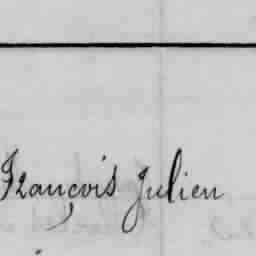 François Julien